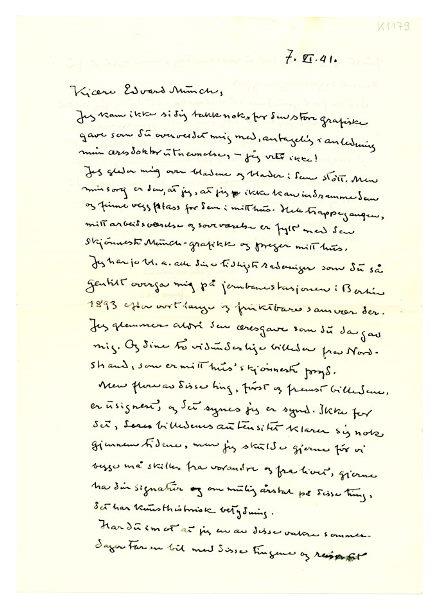 K1179
7. VI. 41.
Kjære Edvard Munch,
Jeg kan ikke si dig takk nok, for den store grafiske
gave som du overveldet mig med, antagelig i anledning
min æresdoktorutnevnelse, – jeg vet ikke!
Jeg gleder mig over bladene og blader i dem støtt. Men
min sorg er den, at jeg, at jeg ikke kan indramme dem
og finne veggplass for dem i mitt hus. Hele trappegangen,
mitt arbeidsværelse og soveværelse er fylt med den
skjønneste Munch-grafikk og preger mitt hus.
Jeg har jo bl. a. alle dine tidligste raderinger som du så
gentilt overga mig på jernbanestasjonen i Berlin
1893 efter vort lange og fruktbare samvær der.
Jeg glemmer aldri den æresgave som du da gav
mig. Og dine to vidunderlige billeder fra Nord-
strand, som er mitt hus' skjønneste pryd.
Men flere av disse ting, først og fremst billedene,
er usignert, og det synes jeg er synd. Ikke for
det, deres billedenes autensitet klarer sig nok
gjennem tidene, men jeg skulde gjerne før vi
begge må skilles fra verandre og fra livet, gjerne
ha din signatur og om mulig årstal på disse ting,
det har kunsthistorisk betydning.
Har du imot at jeg en av disse vakre sommer-
dager tar en bil med disse tingene og